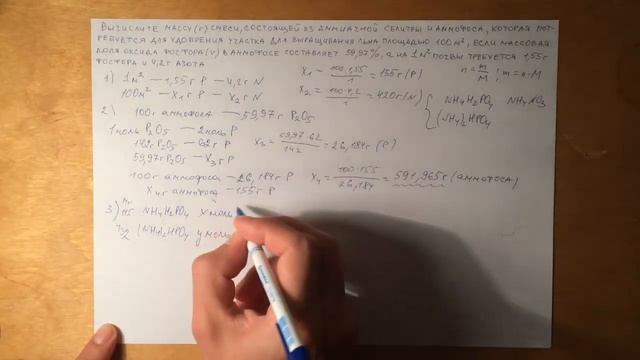 ВЫЧИСЛИТЕ МАССУ (Г) СМЕСИ, СОСТОЯЩЕЙ ИЗ АММИАЧНОЙ СЕЛИТРЫ И АММОФОСА, КОТОРАЯ ПОТ-
РЕБУЕТСЯ ДЛЯ УДОБРЕНИЯ УЧАСТКА ДЛЯ ВЫРАЩИВАНИЯ ЛЬНА ПЛОЩАДЬЮ 100 м², ЕСЛИ МАССОВАЯ
ДОЛЯ ОКСИДА ФОСФОРА (V) В АММОФОСЕ СОСТАВЛЯЕТ 59,97%, А НА 1 м² ПОЧВЫ ТРЕБУЕТСЯ 1,55 г
ФОСФОРА И 4,2 г АЗОТА
1) 1 м² — 1,55 г P — 4,2 г N
100 м² — X₁ г P — X₂ г N
X₁ = 100·1,55 / 1 = 155 г (P)
X₂ = 100·4,2 / 1 = 420 г (N)
n = m / M ; m = n·M
NH₄H₂PO₄ NH₄NO₃
(NH₄)₂HPO₄
2) 100 г аммофоса — 59,97 г P₂O₅
1 моль P₂O₅ — 2 моль P
142 г P₂O₅ — 62 г P
59,97 г P₂O₅ — X₃ г P
X₃ = 59,97·62 / 142 = 26,184 г (P)
100 г аммофоса — 26,184 г P
X₄ г аммофоса — 155 г P
X₄ = 100·155 / 26,184 = 591,965 г (аммофоса)
3) Mr
115 NH₄H₂PO₄ X моль
132 (NH₄)₂HPO₄ y моль